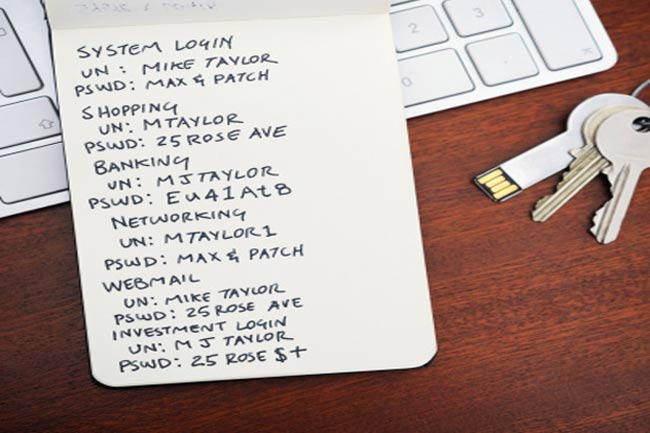 SYSTEM LOGIN
UN: MIKE TAYLOR
PSWD: MAX & PATCH
SHOPPING
UN: MTAYLOR
PSWD: 25 ROSE AVE
BANKING
UN: MJTAYLOR
PSWD: Eu41At8
NETWORKING
UN: MTAYLOR1
PSWD: MAX & PATCH
WEBMAIL
UN: MIKE TAYLOR
PSWD: 25 ROSE AVE
INVESTMENT LOGIN
UN: MJ TAYLOR
PSWD: 25 ROSE $+
2
3
0